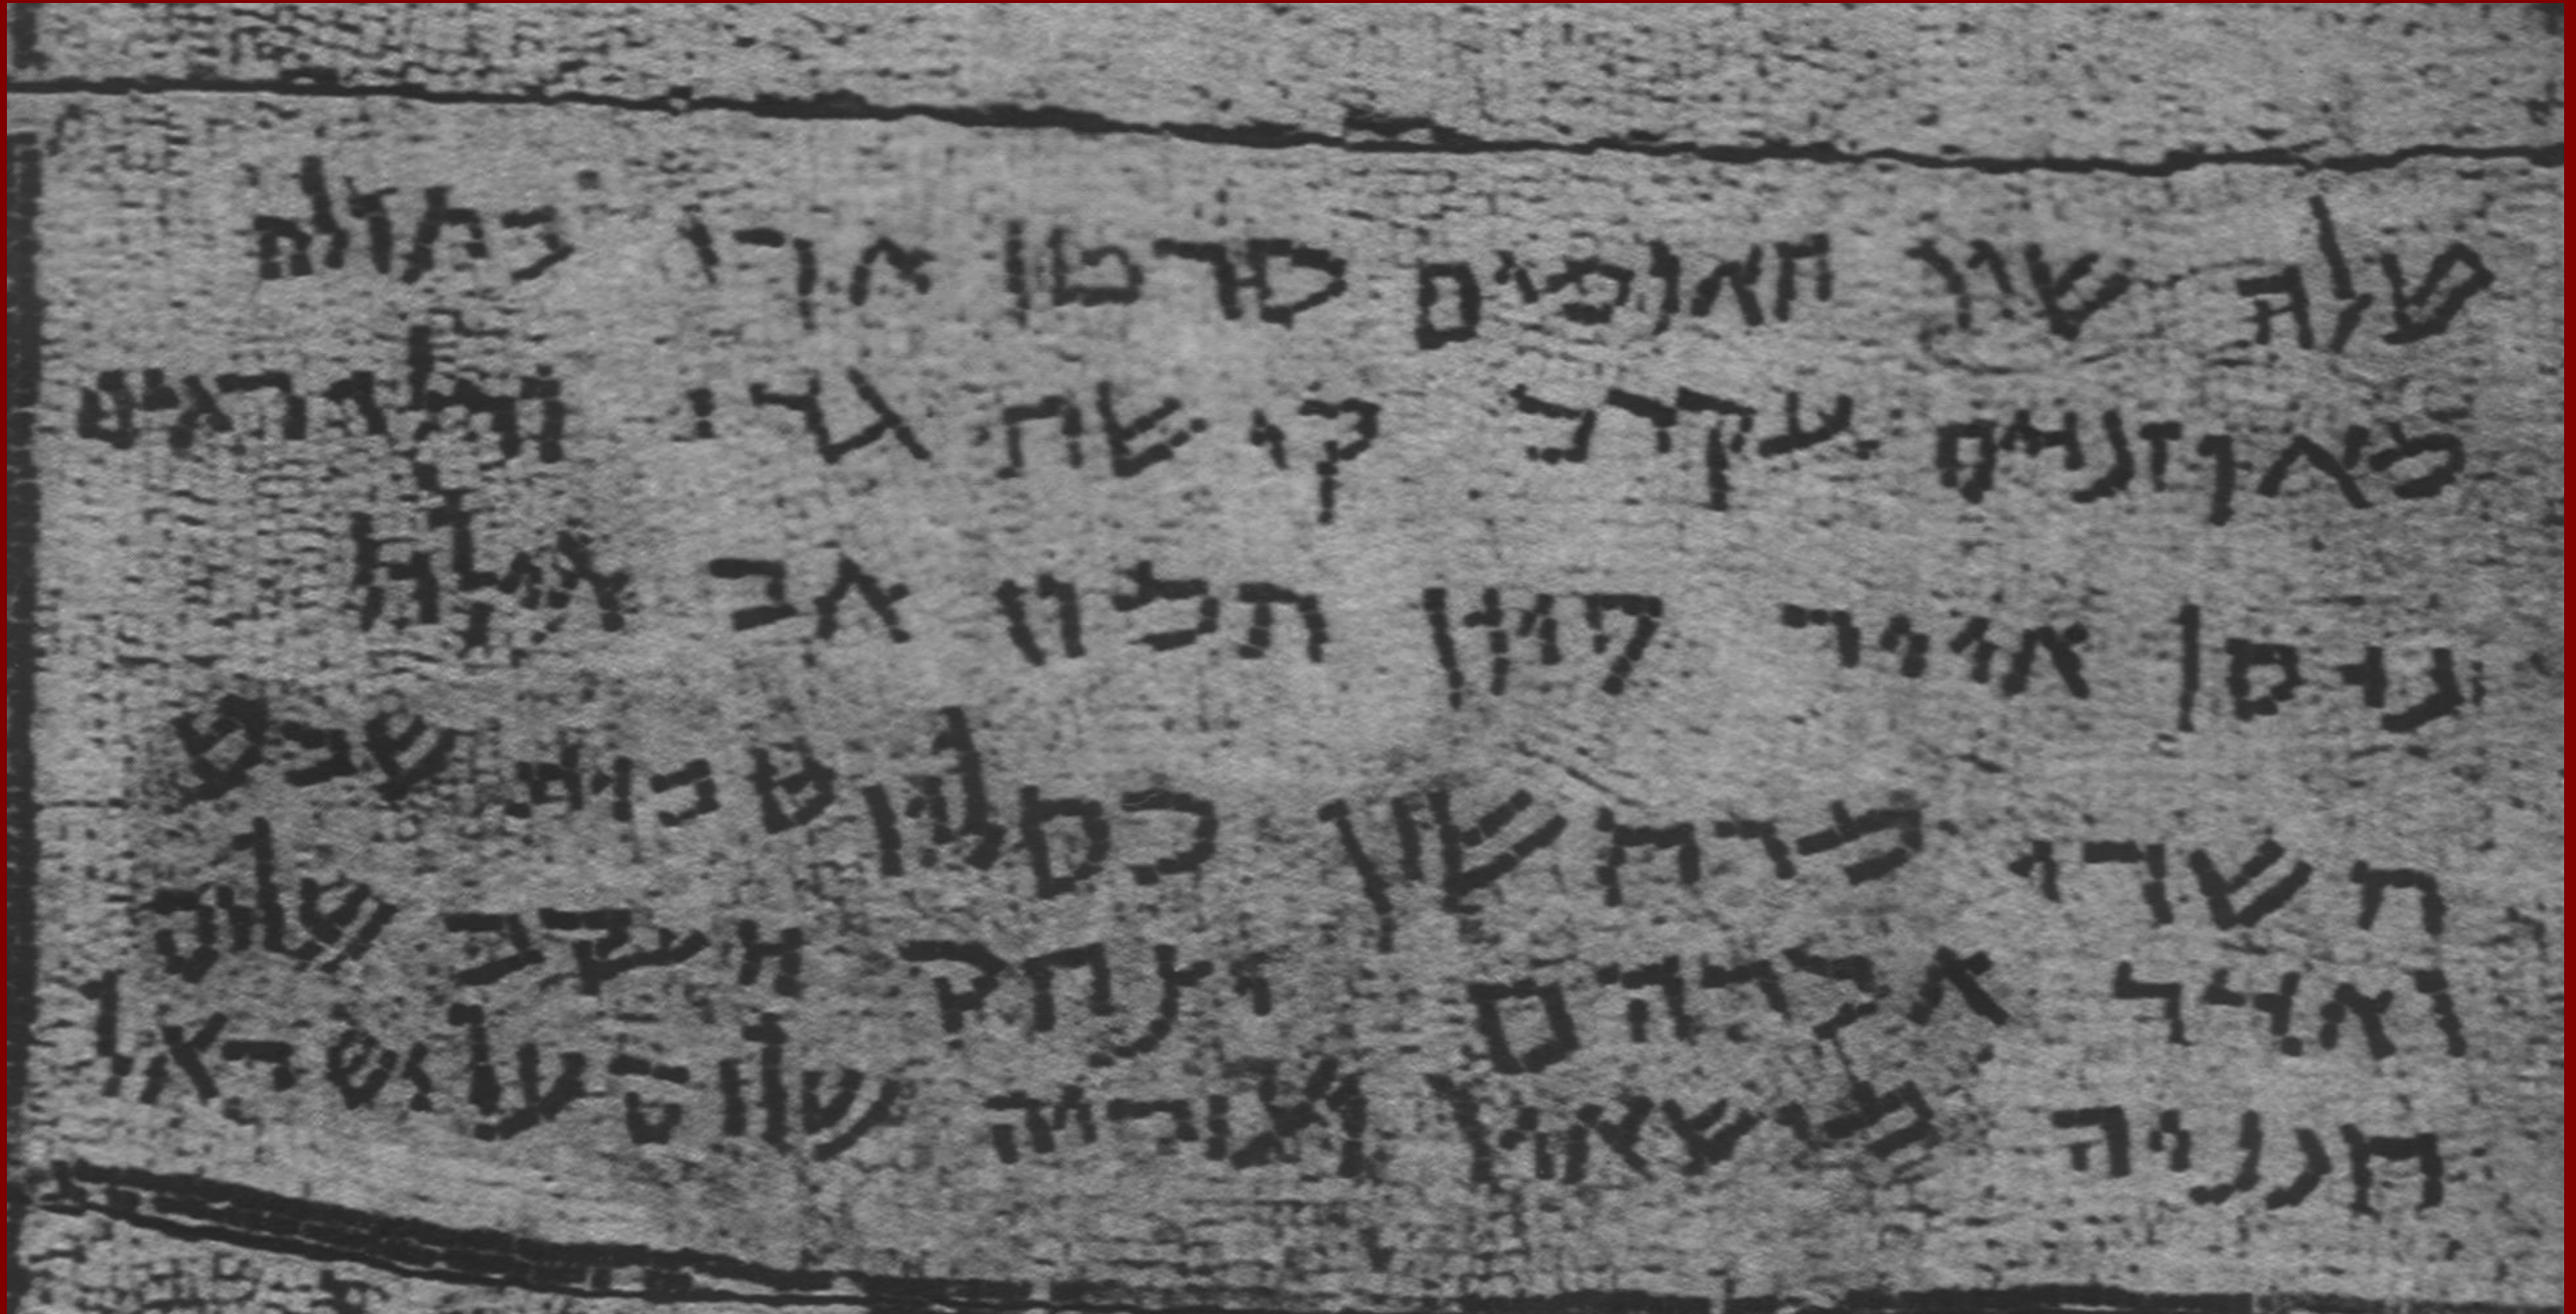 טלה שור תאומים סרטן ארי בתולה
מאוזניים עקרב קישת גדי ודלי דגים
ניסן אייר סיון תמוז אב אילול
תשרי מרחשון כסליו טבית שבט
ואדר אברהם יצחק יעקב שלום
חנניה מישאיל ועזריה שלום על ישראל